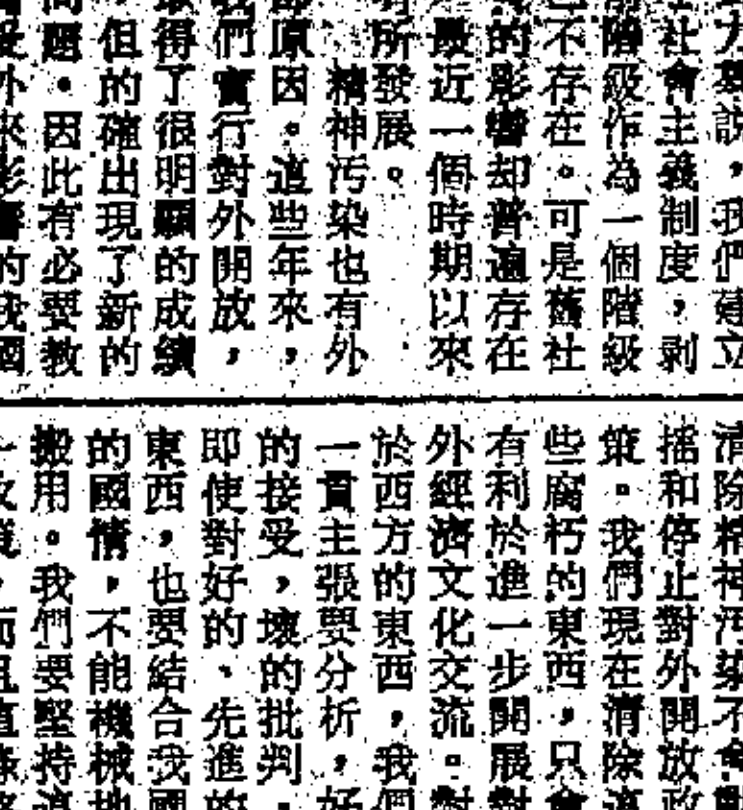 說，我們建立
社會主義制度，剥
階級作為一個階級
不存在。可是舊社
的影響却普遍存在
最近一個時期以來
所發展。
精神污染也有外
原因。這些年來，
們實行對外開放，
得了很明顯的成績
但的確出現了新的
題。因此有必要教
外來影響的我國
清除精神污染不會
摇和停止對外開放政
策。我們現在清除這
些腐朽的東西，只會
有利於進一步開展對
外經濟文化交流。對
於西方的東西，我們
一貫主張要分析，好
的接受，壞的批判。
即使對好的、先進的
東西，也要結合我國
的國情，不能機械地
搬用。我們要堅持這